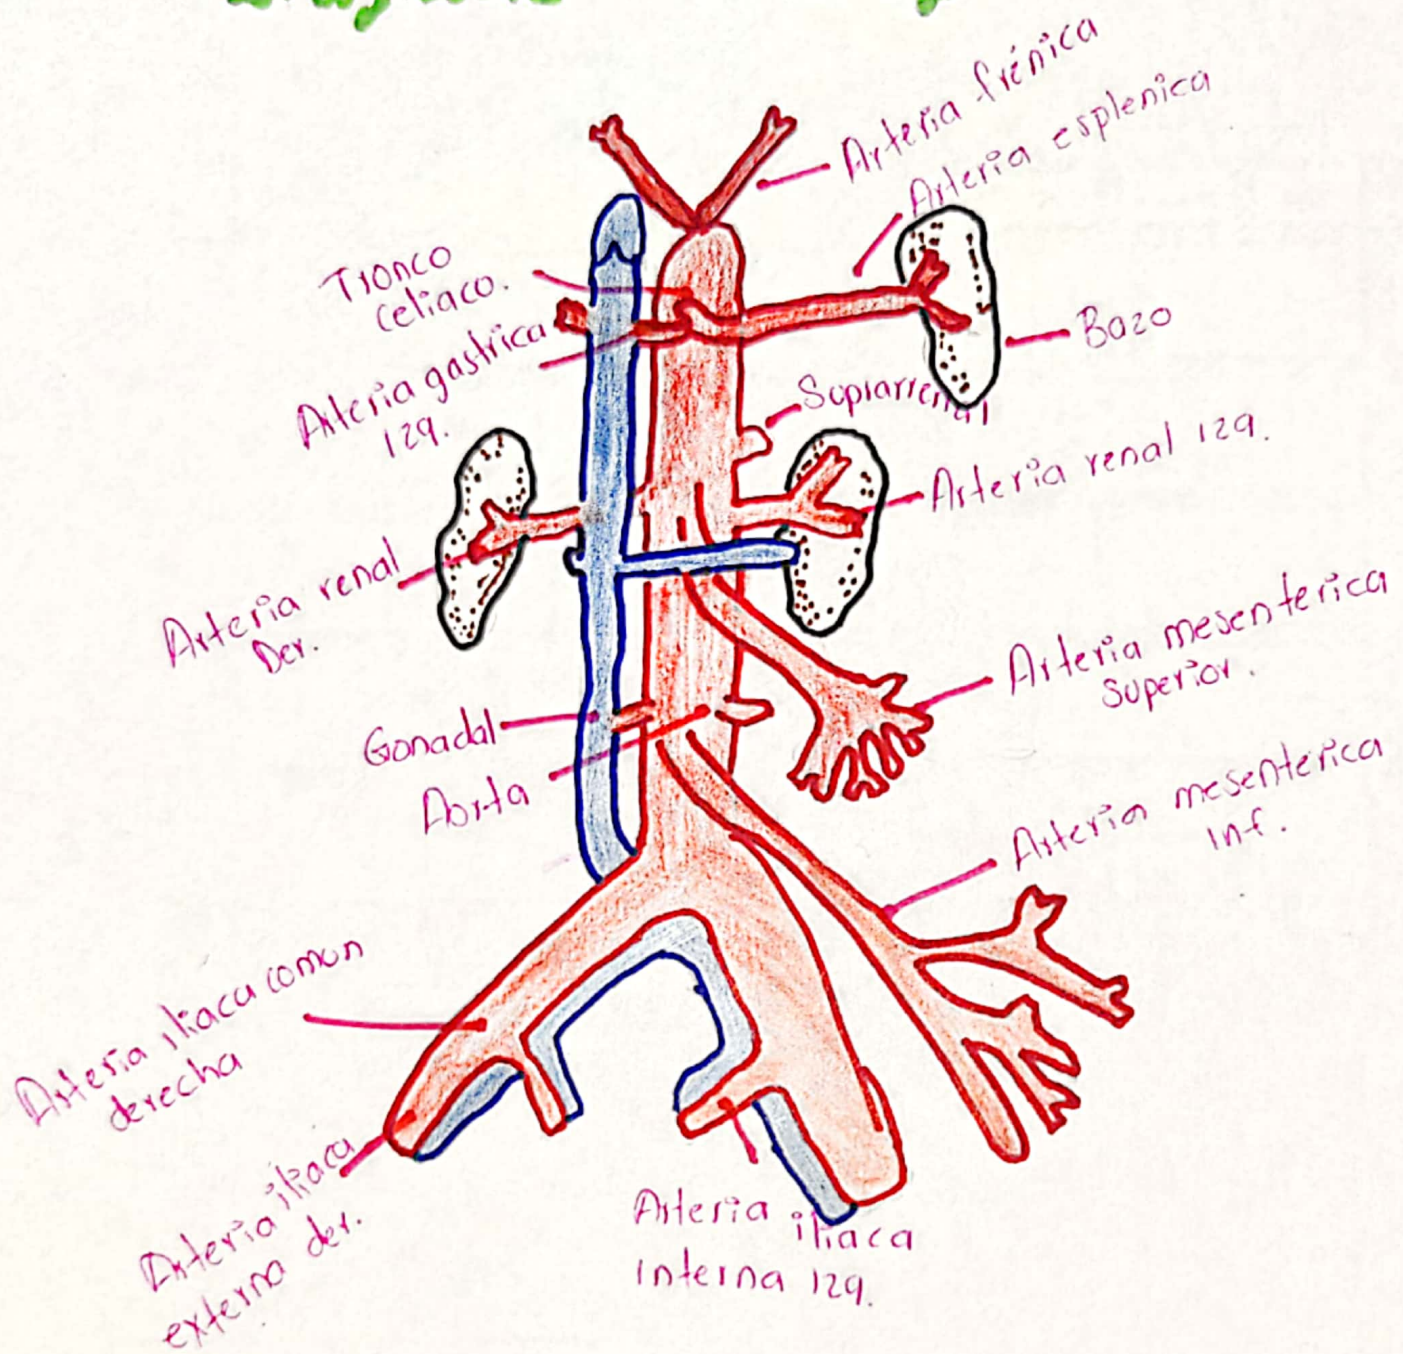 Arteria frénica
Arteria esplenica
Tronco
celiaco.
Bazo
Arteria gastrica
izq.
Suprarrenal
Arteria renal izq.
Arteria renal
Der.
Arteria mesenterica
superior.
Gonadal
Aorta
Arteria mesenterica
inf.
Arteria iliaca comun
derecha
Arteria iliaca
externa der.
Arteria iliaca
interna izq.